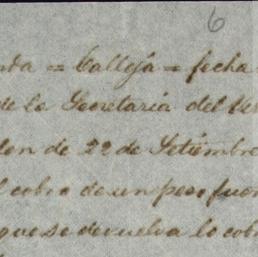 6
nda = Calleja = fecha
de la Secretaria del
den de 22 de Setiembre
l cobro de un peso fuer
que se devuelva lo cob